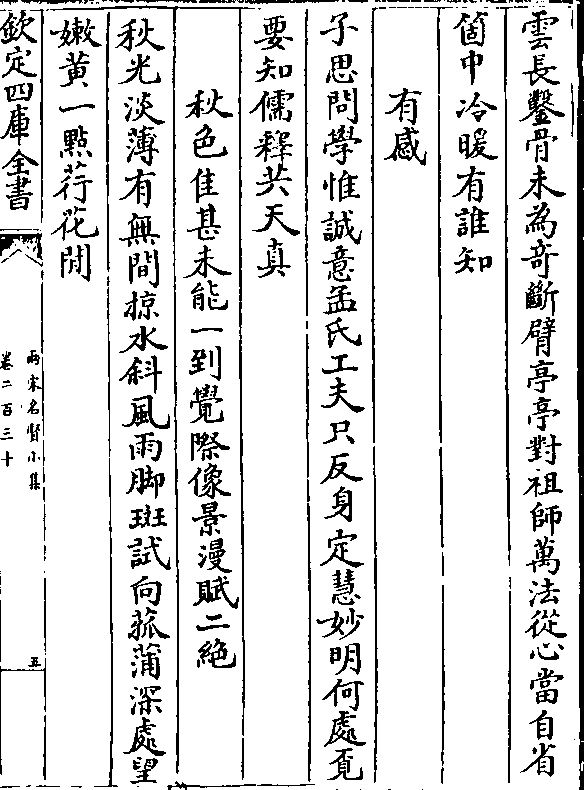 雲長鑿骨未為奇斷臂亭亭對祖師萬法從心當自省
箇中冷暖有誰知
有感
子思問學惟誠意孟氏工夫只反身定慧妙明何處覓
要知儒釋共天真
秋色佳甚未能一到覺際像景漫賦二絶
秋光淡薄有無間掠水斜風雨脚斑試向菰蒲深處望
嫩黄一點荇花閒
欽定四庫全書
兩宋名賢小集
卷二百三十
五